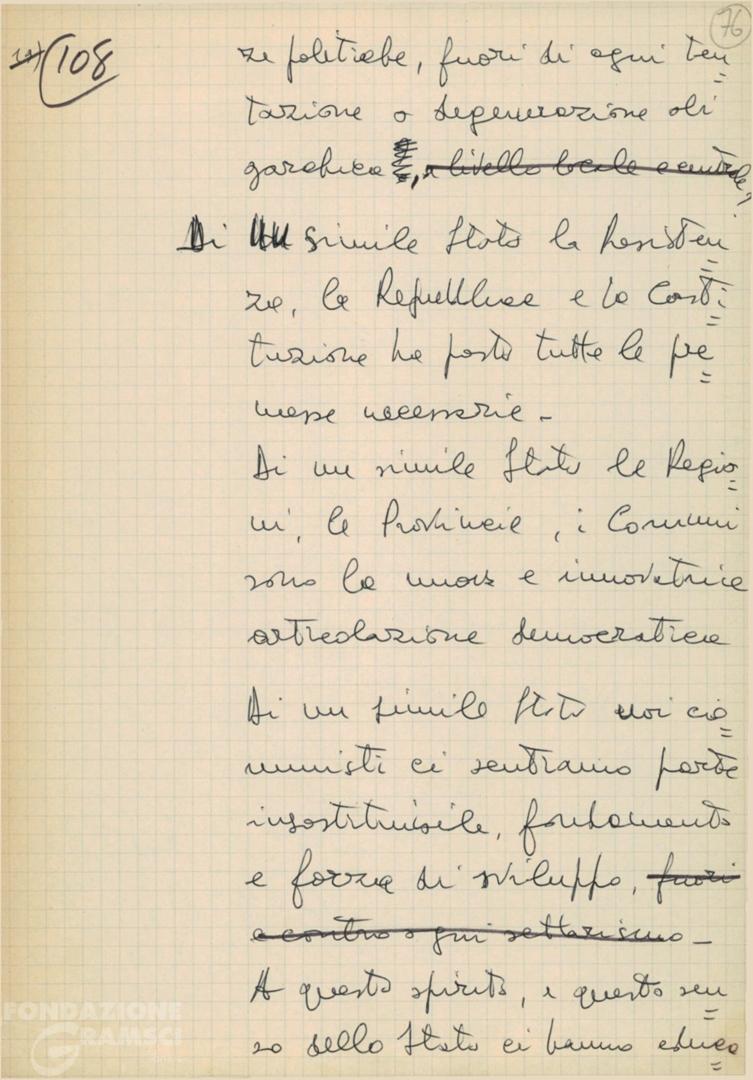 76
108
ze politiche, fuori di ogni ten=
tazione o degenerazione oli
garchica, a livello locale e centrale,
Di simile Stato la Resisten=
za, la Repubblica e la Costi=
tuzione ha posto tutte le pre=
messe necessarie -
Di un simile Stato le Regio=
ni, le Provincie, i Comuni
sono la nuova e innovatrice
articolazione democratica
Di un simile Stato noi co=
munisti ci sentiamo parte
insostituibile, fondamento
e forza di sviluppo, fuori
e contro ogni settarismo -
A questo spirito, a questo sen=
so dello Stato ci hanno educa=
FONDAZIONE
GRAMSCI